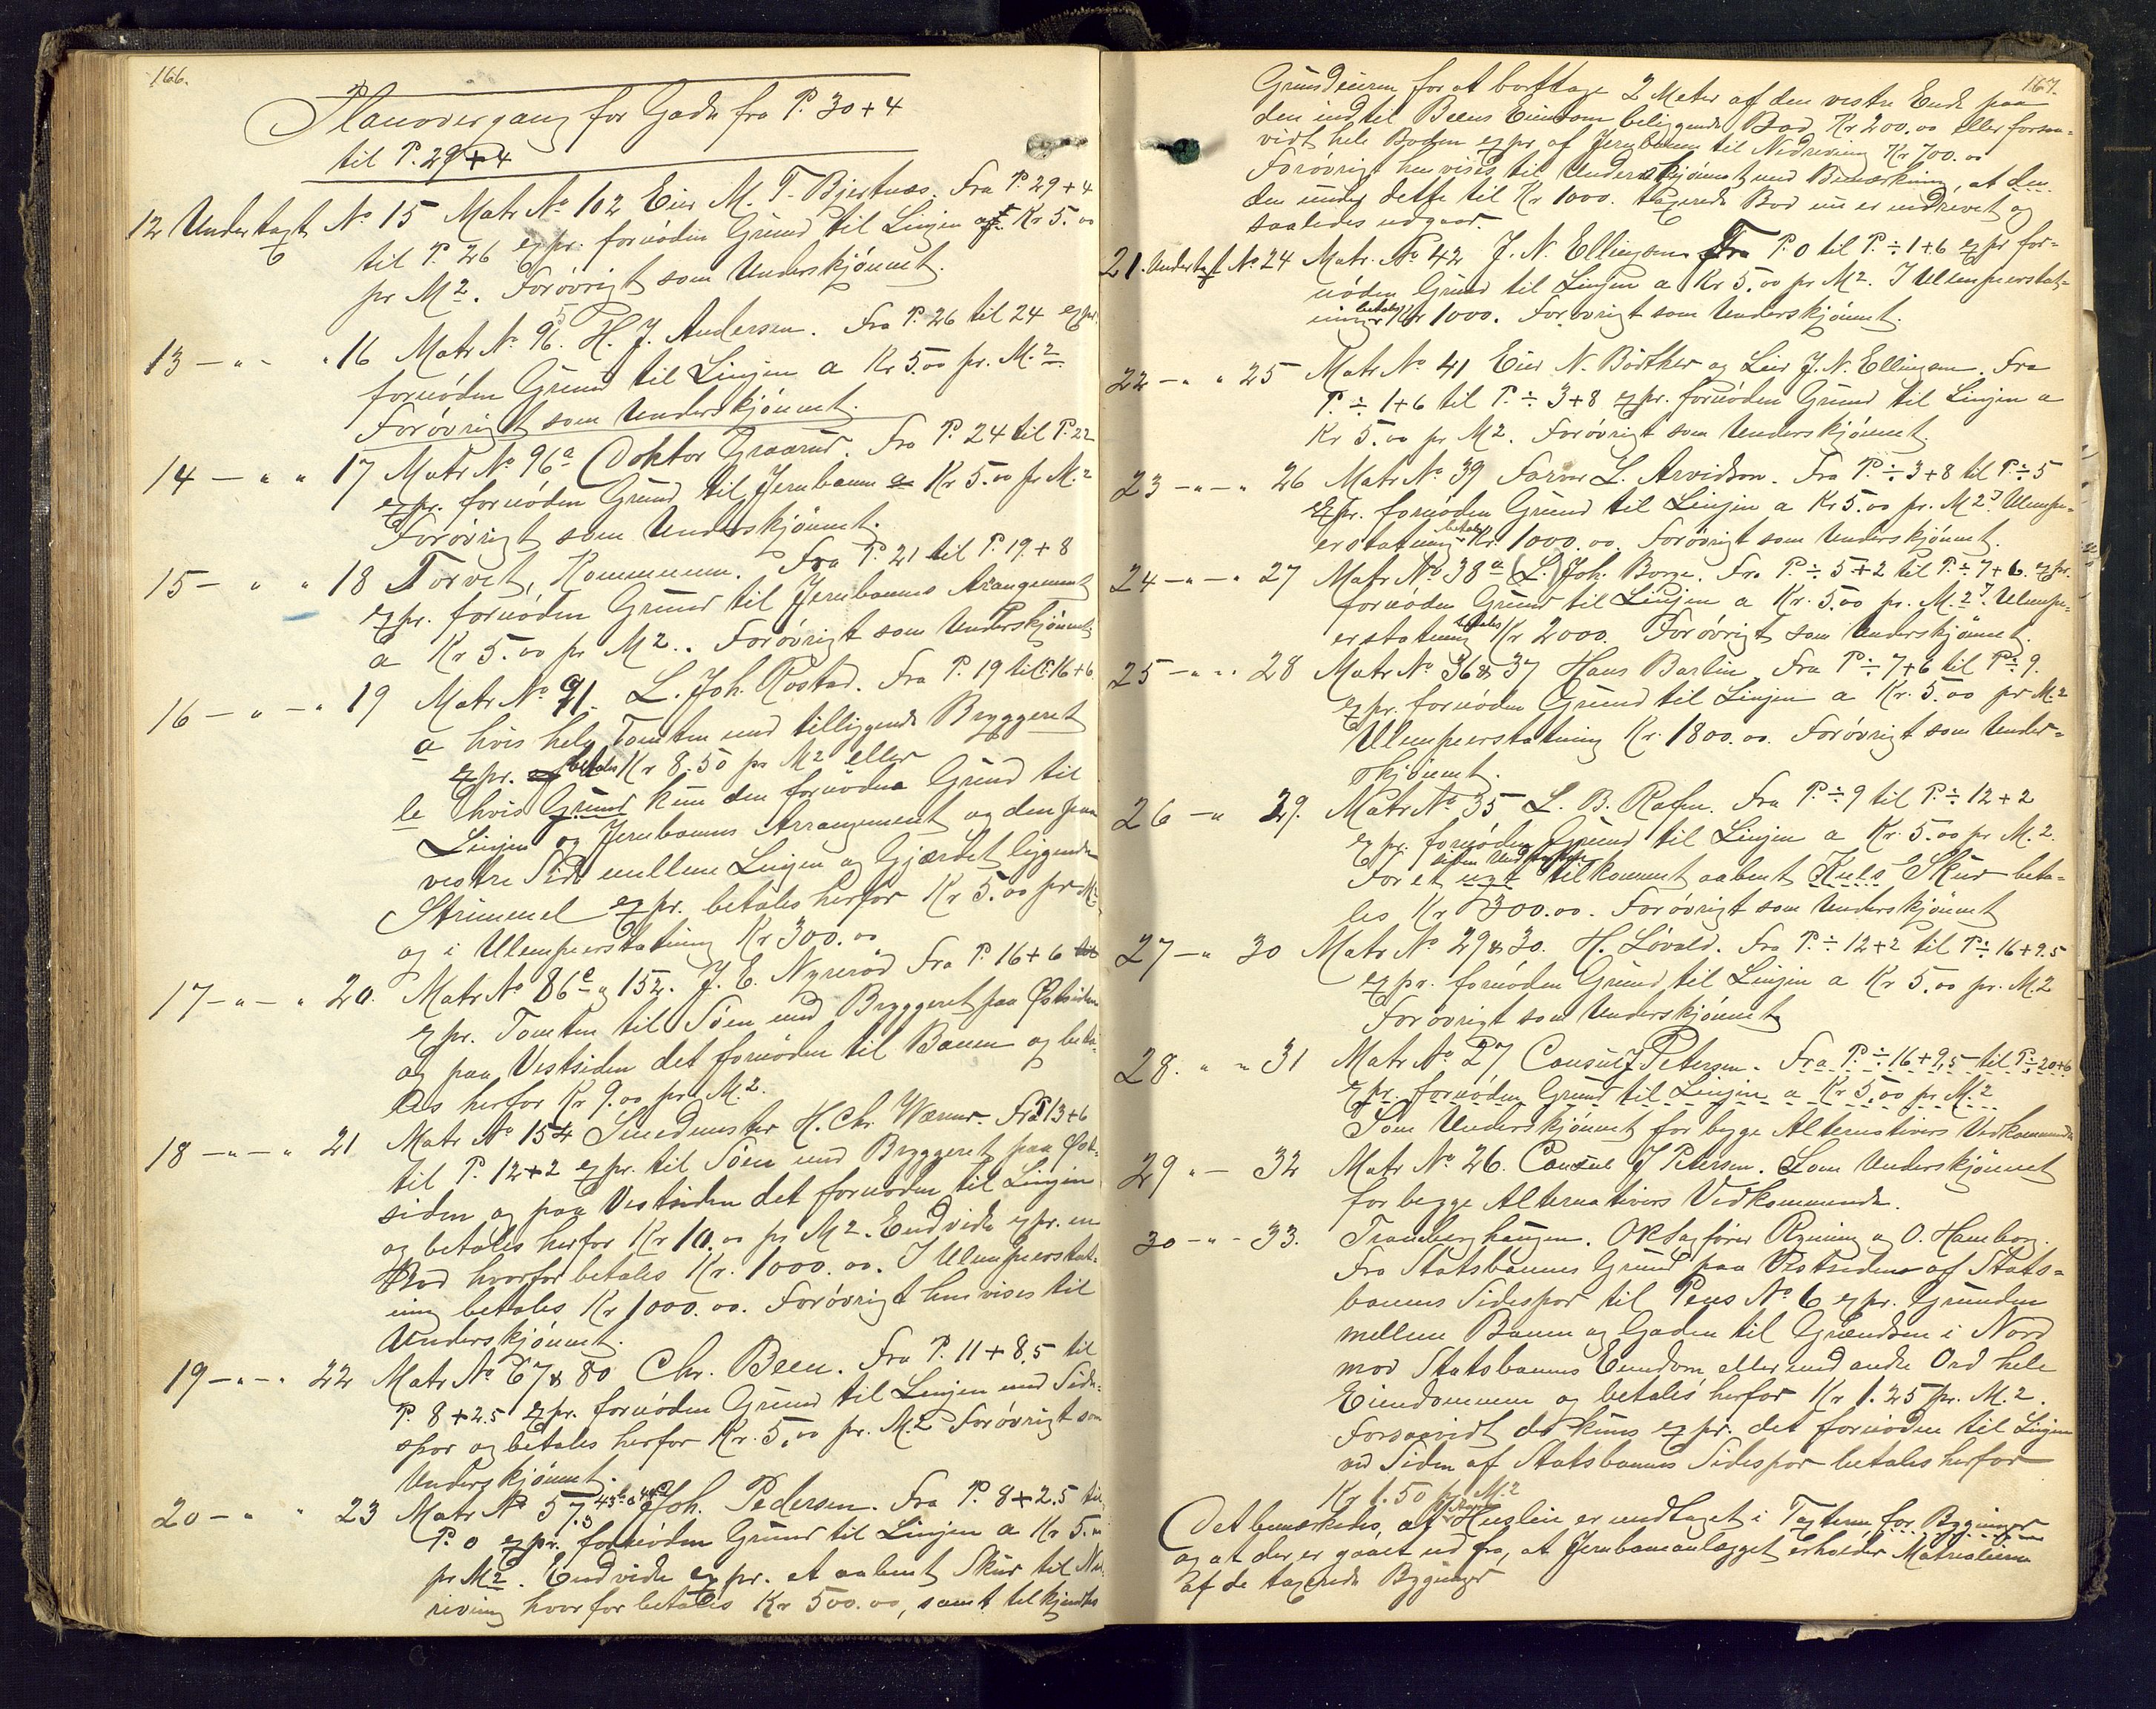 166.
Planovergang for Gade fra P. 30+4
til P. 29+4
12 Undertaxt No 15 Matr No 102 Eier M. T. Bjertnæs. Fra P. 29+4
til P. 26 expr. fornöden Grund til Linjen af Kr 5.00
pr M2. Forövrigt som Underskjönnet.
13 — " - " 16 Matr No 96. H. J. Andersen. Fra P. 26 til 24 expr.
fornöden Grund til Linjen a Kr 5.00 pr. M.2
Forövrigt som Underskjönnet.
14 — " " 17 Matr No 96a Doktor Graarud. Fra P. 24 til P. 22
expr. fornöden Grund til Jernbanen a Kr 5.00 pr M.2
Forövrigt som Underskjönnet.
15 — " " 18 Torvet, Kommunen. Fra P. 21 til P. 19+8
expr. fornöden Grund til Jernbanens Arangement
a Kr 5.00 pr M2.. Forövrigt som Underskjönnet
16 — " — " 19 Matr No 91. L. Joh. Rostad. Fra P. 19 til P. 16+6.
a hvis hele Tomten med tilliggende Bryggeret
expr. betales Kr 8.50 pr M2 eller
b hvis Grund kun den fornödne Grund til
Linjen og Jernbanens Arrangement og den paa
vestre Side mellem Linjen og Gjærdet liggende
Strimmel expr. betales herfor Kr 5.00 pr M2
og i Ulempeerstatning Kr 300.00
17 — " — " 20. Matr No 86c og 152. J. E. Nyreröd Fra P. 16+6
expr. Tomten til Söen med Bryggeret paa Östsiden
og paa Vestsiden det fornöden til Banen og beta-
les herfor Kr 9.00 pr M.2.
18 — " — " 21 Matr No 154 Smedmester H. Chr Warner. Fra P 13+6
til P. 12+2 expr. til Söen med Bryggeret paa Öst-
siden og paa Vestsiden det fornöden til Linjen
og betales herfor Kr 10.00 pr M2. Endvide expr. en
Bod hvorfor betales Kr. 1000.00. I Ulempeerstat-
ning betales Kr 1000.00. Forövrigt henvises til
Underskjönnet.
19 — " — " 22 Matr No 67 & 80 Chr. Been. Fra P. 11+8,5 til
P. 8+2.5 expr. fornöden Grund til Linjen med Side-
spor og betales herfor Kr. 5,00 pr. M.2 Forövrigt som
Underskjönnet.
20 — " " 23 Matr No 57. Joh. Pedersen. Fra P. 8+2.5 til
P. 0 expr. fornöden Grund til Linjen a Kr 5.00
pr M2. Endvide expr. et aabent Skur til Ned-
rivning hvorfor betales Kr 500.00, samt tilkjendes
167.
Grundeieren for at borttage 2 Meter af den vestre Ende paa
den ind til Beens Eiendom beliggende Bod Kr 200.00 eller forsaa-
vidt hele Boden expr. af Jernbanen til Nedrivning Kr 700.00
Forövrigt henvises til Underskjönnet med Bemærkning, at den
den under dette til Kr 1000. taxerede Bod nu er nedrevet og
saaledes udgaar.
21. Undertaxt No 24 Matr. No 42 J. N. Ellingsen Fra P. 0 til P. ÷ 1+6 expr for-
nöden Grund til Linjen a Kr 5.00 pr M2. I Ulempeerstat-
ning betales Kr 1000. Forövrigt som Underskjönnet.
22 — " " 25 Matr No 41 Eier N. Börther og Leier J. N. Ellingsen. Fra
P. ÷ 1+6 til P. ÷ 3+8 expr. fornöden Grund til Linjen a
Kr 5.00 pr M2. Forövrigt som Underskjönnet.
23 — " — " 26 Matr No 39 Farver L. Arvidson. Fra P. ÷ 3+8 til P. ÷ 5
Expr. fornöden Grund til Linjen a Kr 5.00 pr. M2. I Ulempe-
erstatning betales Kr. 1000.00. Forövrigt som Underskjönnet.
24 — " — " 27 Matr No 38a (L.) Joh. Borge. Fra P. ÷ 5+2 til P. ÷ 7+6. expr.
fornöden Grund til Linjen a Kr. 5.00 pr. M.2. I Ulempe-
erstatning betales Kr 2000. Forövrigt som Underskjönnet.
25 — " " 28 Matr No 36 & 37 Hans Barlin. Fra P ÷ 7+6 til P. ÷ 9.
expr. fornöden Grund til Linjen a Kr. 5.00 pr M.2
Ulempeerstatning Kr. 1800.00. Forövrigt som Under-
skjönnet.
26 — " 29. Matr No 35 L. B. Rafen. Fra P. ÷ 9 til P. ÷ 12+2
expr. fornöden Grund til Linjen a Kr. 5.00 pr M.2.
For et siden Undertaxten tilkommet aabent Kuls Skur beta-
les Kr 300.00. Forövrigt som Underskjönnet
27 — " 30 Matr No 29 & 30. H. Lövald. Fra P. ÷ 12+2 til P ÷ 16+9.5
expr. fornöden Grund til Linjen a Kr 5.00 pr. M.2
Forövrigt som Underskjönnet
28. " " 31 Matr No 27 Consul J. Petersen. Fra P. ÷ 16+9,5 til P ÷ 20+6
expr. fornöden Grund til Linjen a Kr 5.00 pr M.2
Som Underskjönnet for begge Alternativers Vedkommende
29 " — 32 Matr No 26. Consul J Petersen. Som Underskjönnet
for begge Alternativers Vedkommende.
30 — " — 33. Tranberghaugen. O R Sagförer Ryning og O. Hamborg.
Fra Statsbanens Grund paa Vestsiden af Stats-
banens Sidespor til Pens No 6 expr. Grunden
mellem Banen og Gaden til Grændsen i Nord
mod Statsbanens Eiendom, eller med andre Ord hele
Eiendommen og betales herfor Kr 1.25 pr. M.2.
Forsaavidt der kuns expr. det fornöden til Linjen
ved Siden af Statsbanens Sidespor betales herfor
Kr 1.50 pr M.2
Det bemærkedes, at Husleie er medtaget i Taxterne for Bygninger
og at der er gaaet ud fra, at Jernbaneanlægget erholder Matrialierne
af de taxerede Bygninger